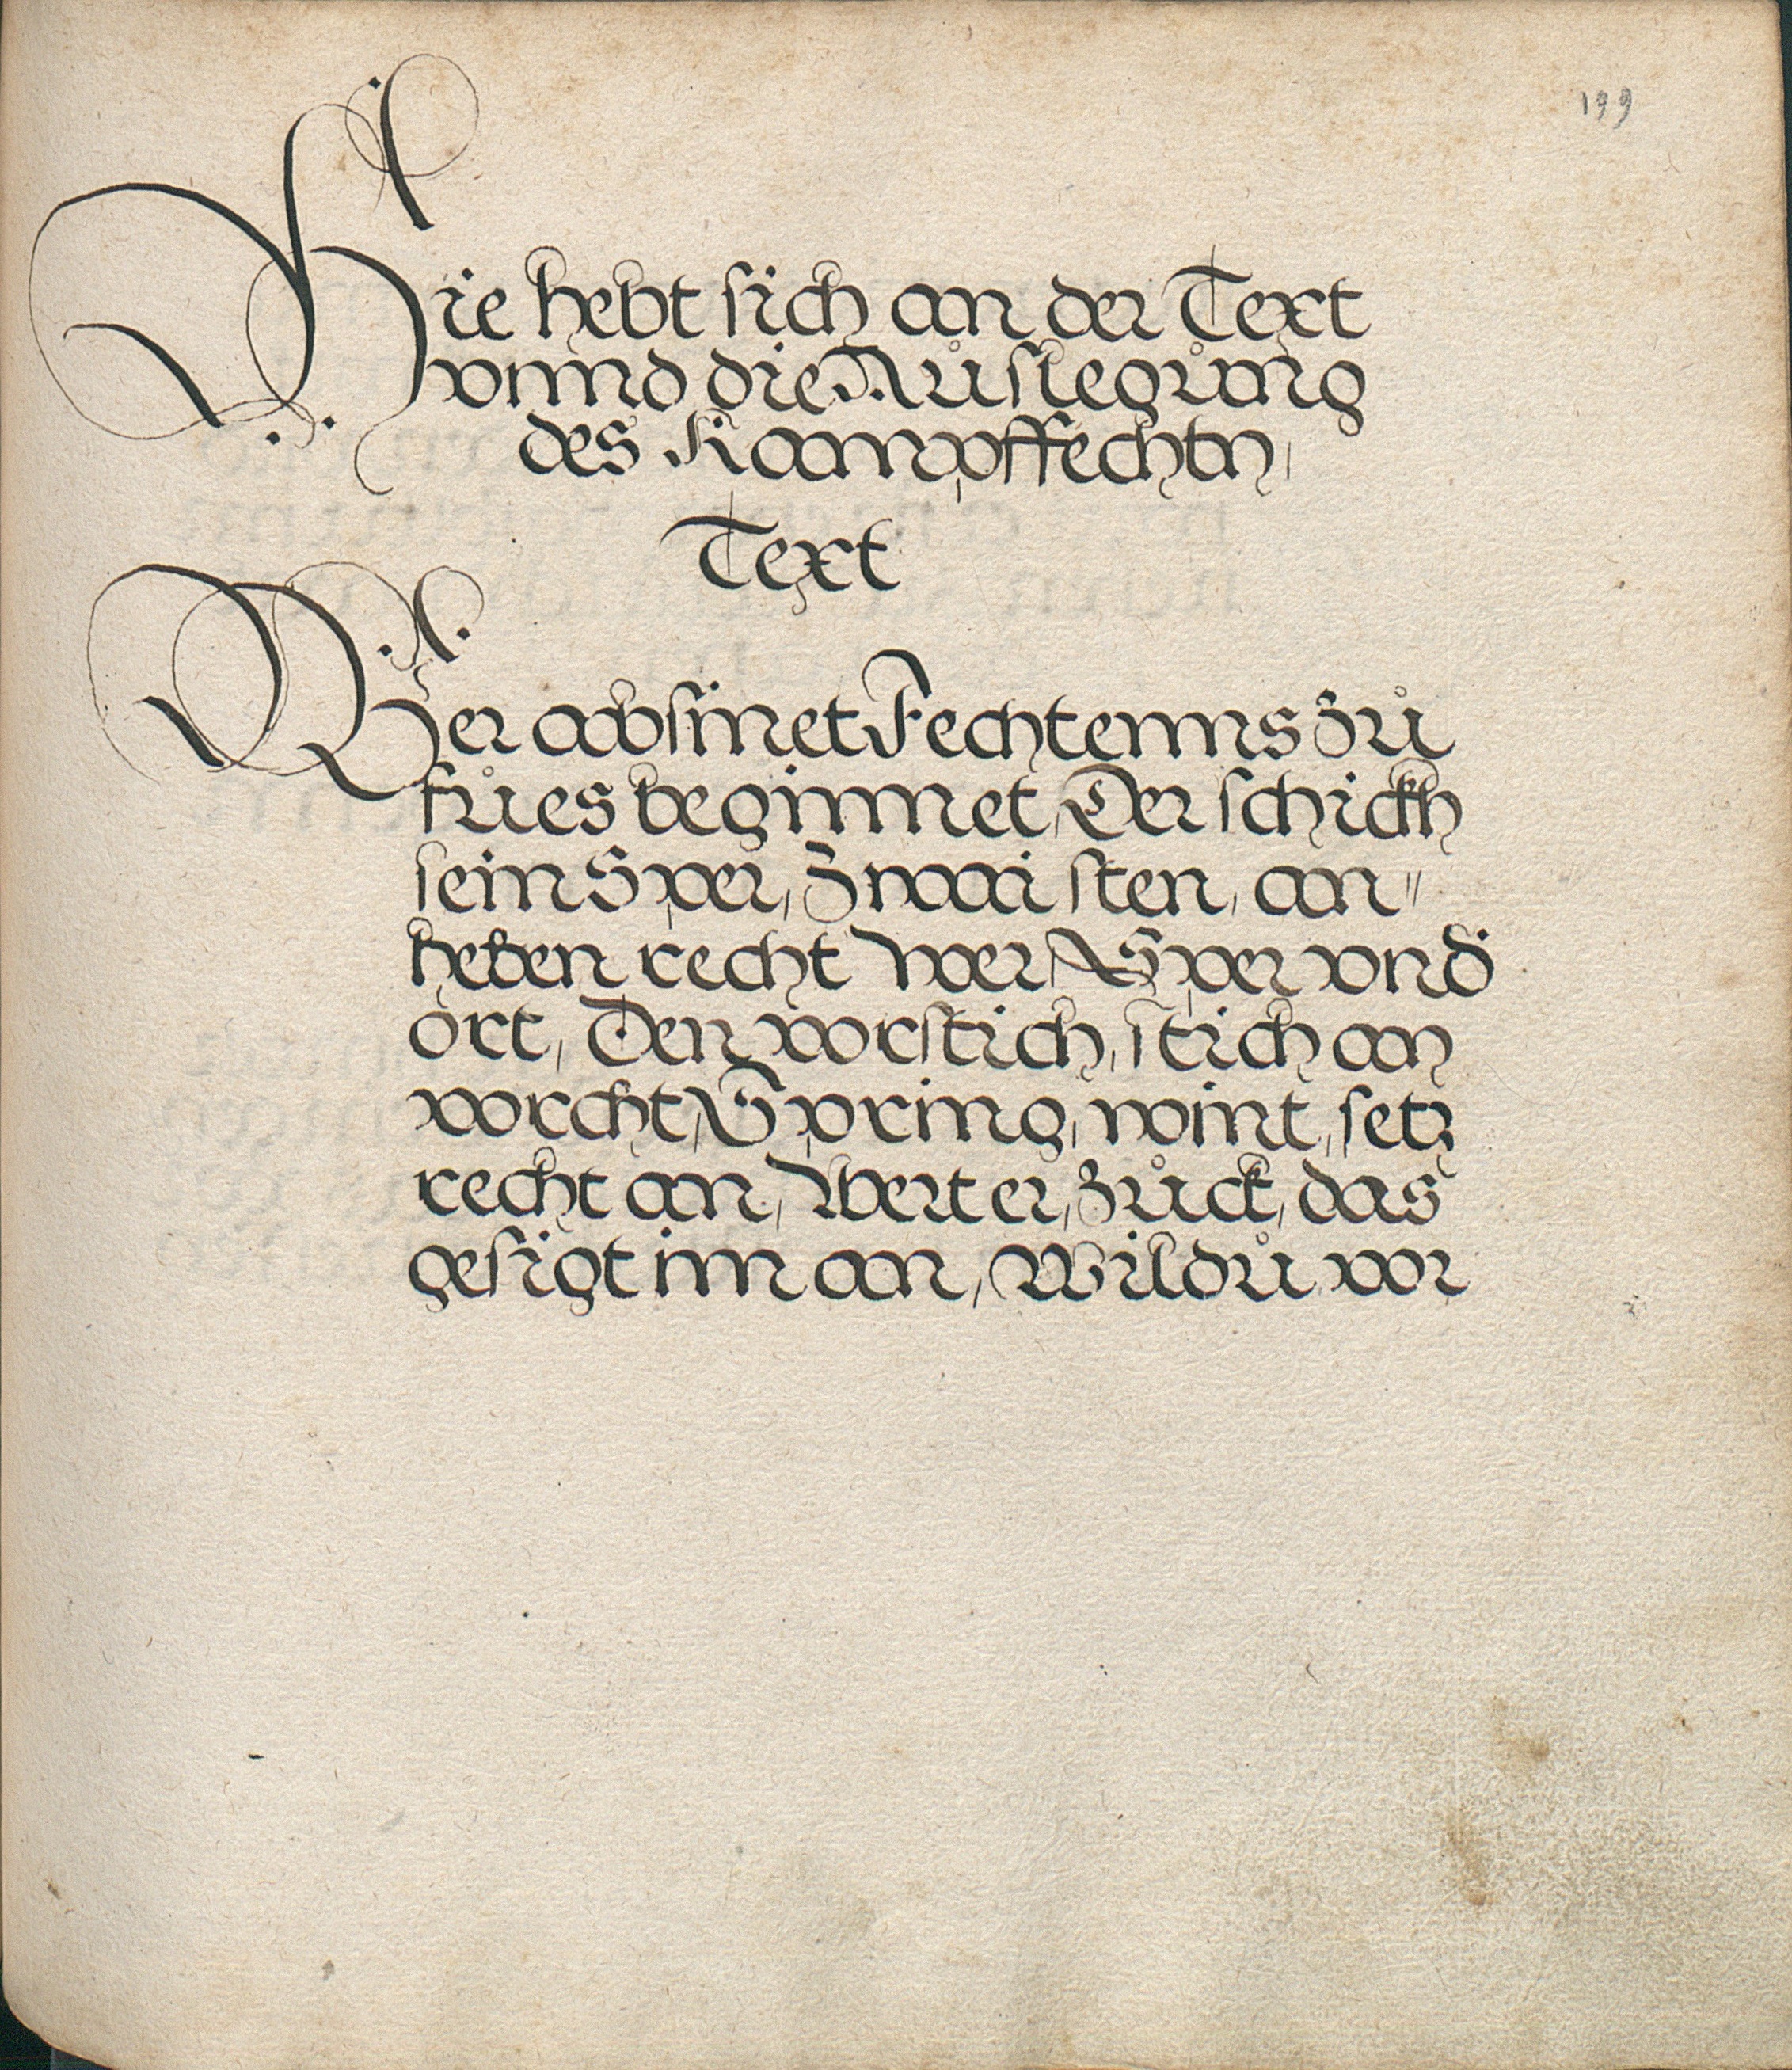 199
Hie hebt sich an der Text
vnnd die Auͦsleguͦng
des Kampffechtn,
Text
Wer absinet Fechtenns Zuͦ
fuͦes beginnet, Der schickh
sein Sper, Zwai sten, an„
heben recht wer, Sper vnd
ort, Den vorstich, stich an
vorcht, Spring, wint, setz
recht an, Wert er, Zuͦck, das
gesigt im an, Wilduͦ vor